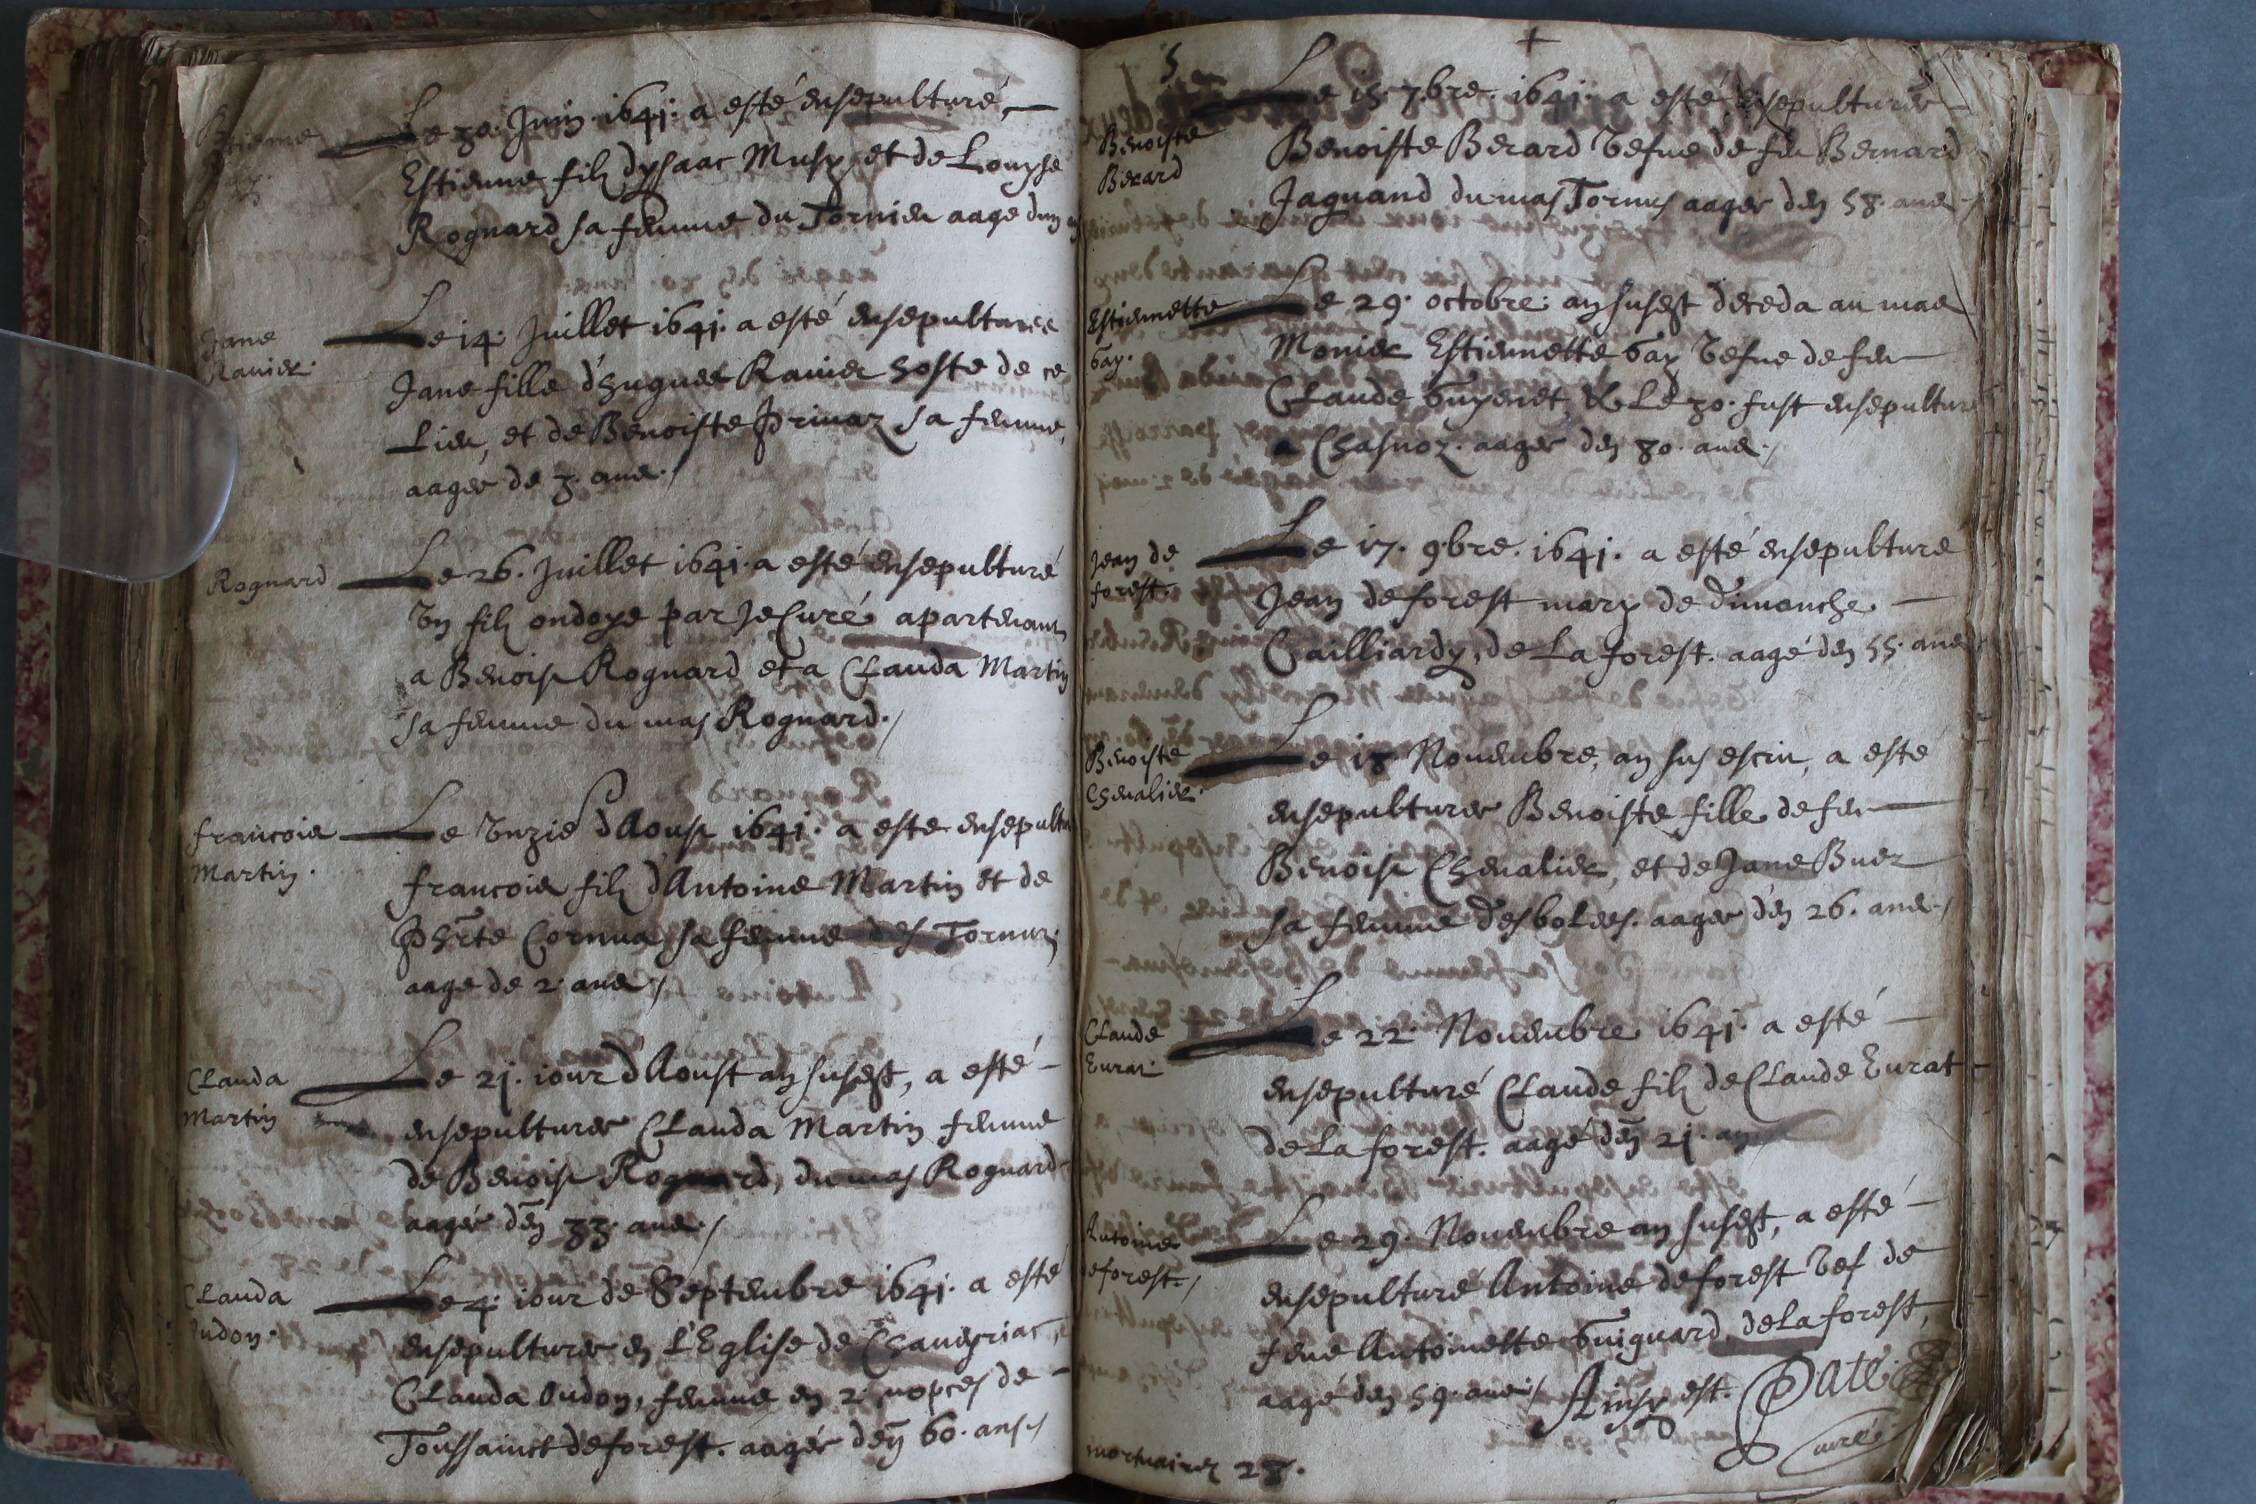 Estienne
Le 30. Juin 1641. a esté ensepulturé,
Estienne filz d'ysaac Musy et de Louyse
Rognard sa femme du Tornier aage d'un
Jane
Ranier.
Le 14. Juillet 1641. a esté ensepulturée
Jane fille d'hugues Ranier hoste de ce
Lieu, et de Benoiste Privaz sa femme,
aagée de 3. ans./
Rognard
Le 26. Juillet 1641. a esté ensepulturé
Vn filz ondoye par le Curé apartenant
a Benoist Rognard et a Clauda Martin
sa femme du mas Rognard./
francois
Martin.
Le Vnzie d'Aoust 1641. a este ensepultu
francois filz d'Antoine Martin et de
Phrte Cornua sa femme des Tornus,
aage de 2. ans./
Clauda
Martin
Le 21. iour d'Aoust an susest, a esté
ensepulturée Clauda Martin femme
de Benoist Rognard, du mas Rognard
aagée d'en 33. ans./
Clauda
Oudon.
Le 4. iour de Septembre 1641. a esté
ensepulturée en l'Eglise de
Clauda Oudon, femme en 2. nopces de
Toussainct deforest. aagée d'en 60. ans./
5
Benoiste
Berard
Le 15. 7bre. 1641. a esté ensepulturée
Benoiste Berard Vefue de feu Bernard
Jaquand du mas Tornus aagée d'en 58. ans./
Estiennette
Gay.
Le 29. octobre. an susest deceda au mas
Monier Estiennette Gay Vefue de feu
Claude Guyenet, & Le 30. fust ensepultur
a Chasnoz. aagée d'en 80. ans./
Jean de
forest.
Le 17. 9bre. 1641. a esté ensepulturé
Jean deforest mary de dimanche.
Gailliardy, de La forest. aagé d'en 55. ans
Benoiste
Chevalier.
Le 18 Nouembre, an sus escrit, a esté
ensepulturée Benoiste fille de feu
Benoist Chevalier, et de Jane Buer
sa femme des bolees. aagée d'en 26. ans./
Claude
Eurat.
Le 22. Nouembre 1641. a esté
ensepulturé Claude filz de Claude Eurat
de La forest. aagé d'en 21. an
Antoine
deforest./
Le 29. Nouembre an susest, a esté
ensepulturé Antoine deforest Vef de
feue Antoinette Guignard, de La forest,
aagé d'en 59. ans./ Ainsy est. Pate.
curé.
mortuaires 28.